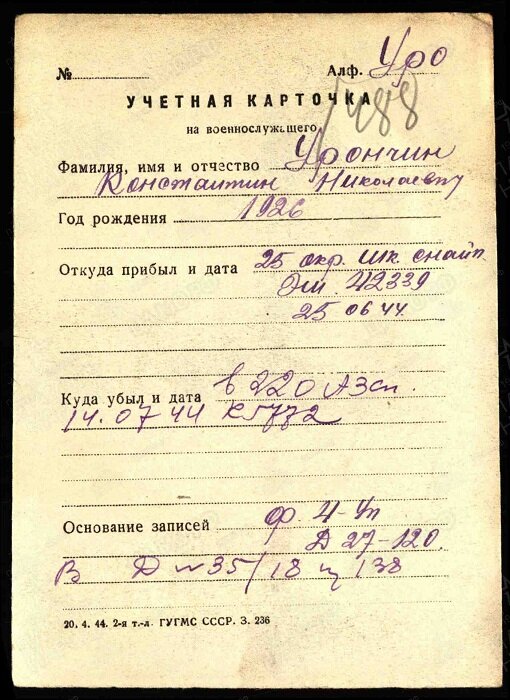 № Алф. Уро
УЧЕТНАЯ КАРТОЧКА
488
на военнослужащего
Фамилия, имя и отчество Урончин
Константин Николаевич
Год рождения 1926
Откуда прибыл и дата 25 окр. шк. снайп.
Эш. 42339
25 06 44
Куда убыл и дата в 220 АЗсп.
14.07.44
Основание записей ф. 4-Уп
Д 27-120
В Д № 35/18 138
20. 4. 44. 2-я т.-л. ГУГМС СССР. З. 236